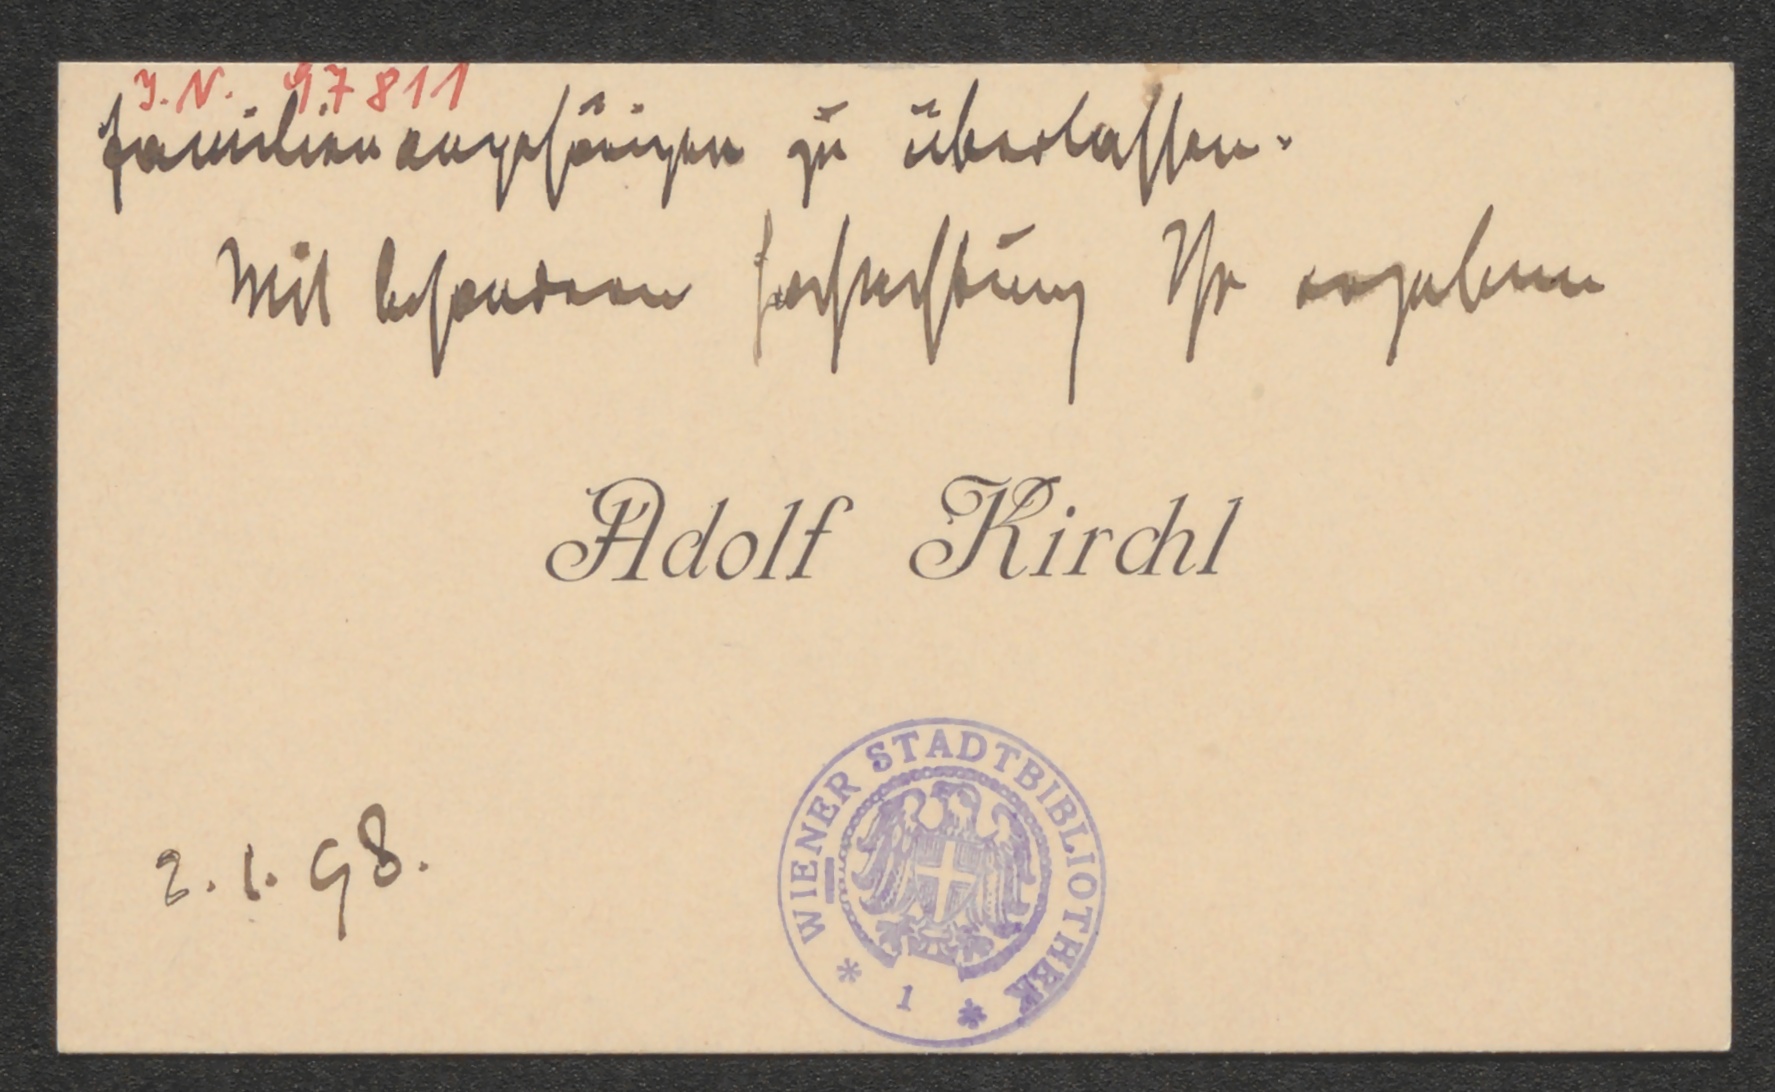 I.N. 97811
Familienangehörigen zu überlassen.
Mit besonderer Hochachtung Ihr ergebener
Adolf Kirchl
WIENER STADTBIBLIOTHEK
* 1 *
2.1.98.